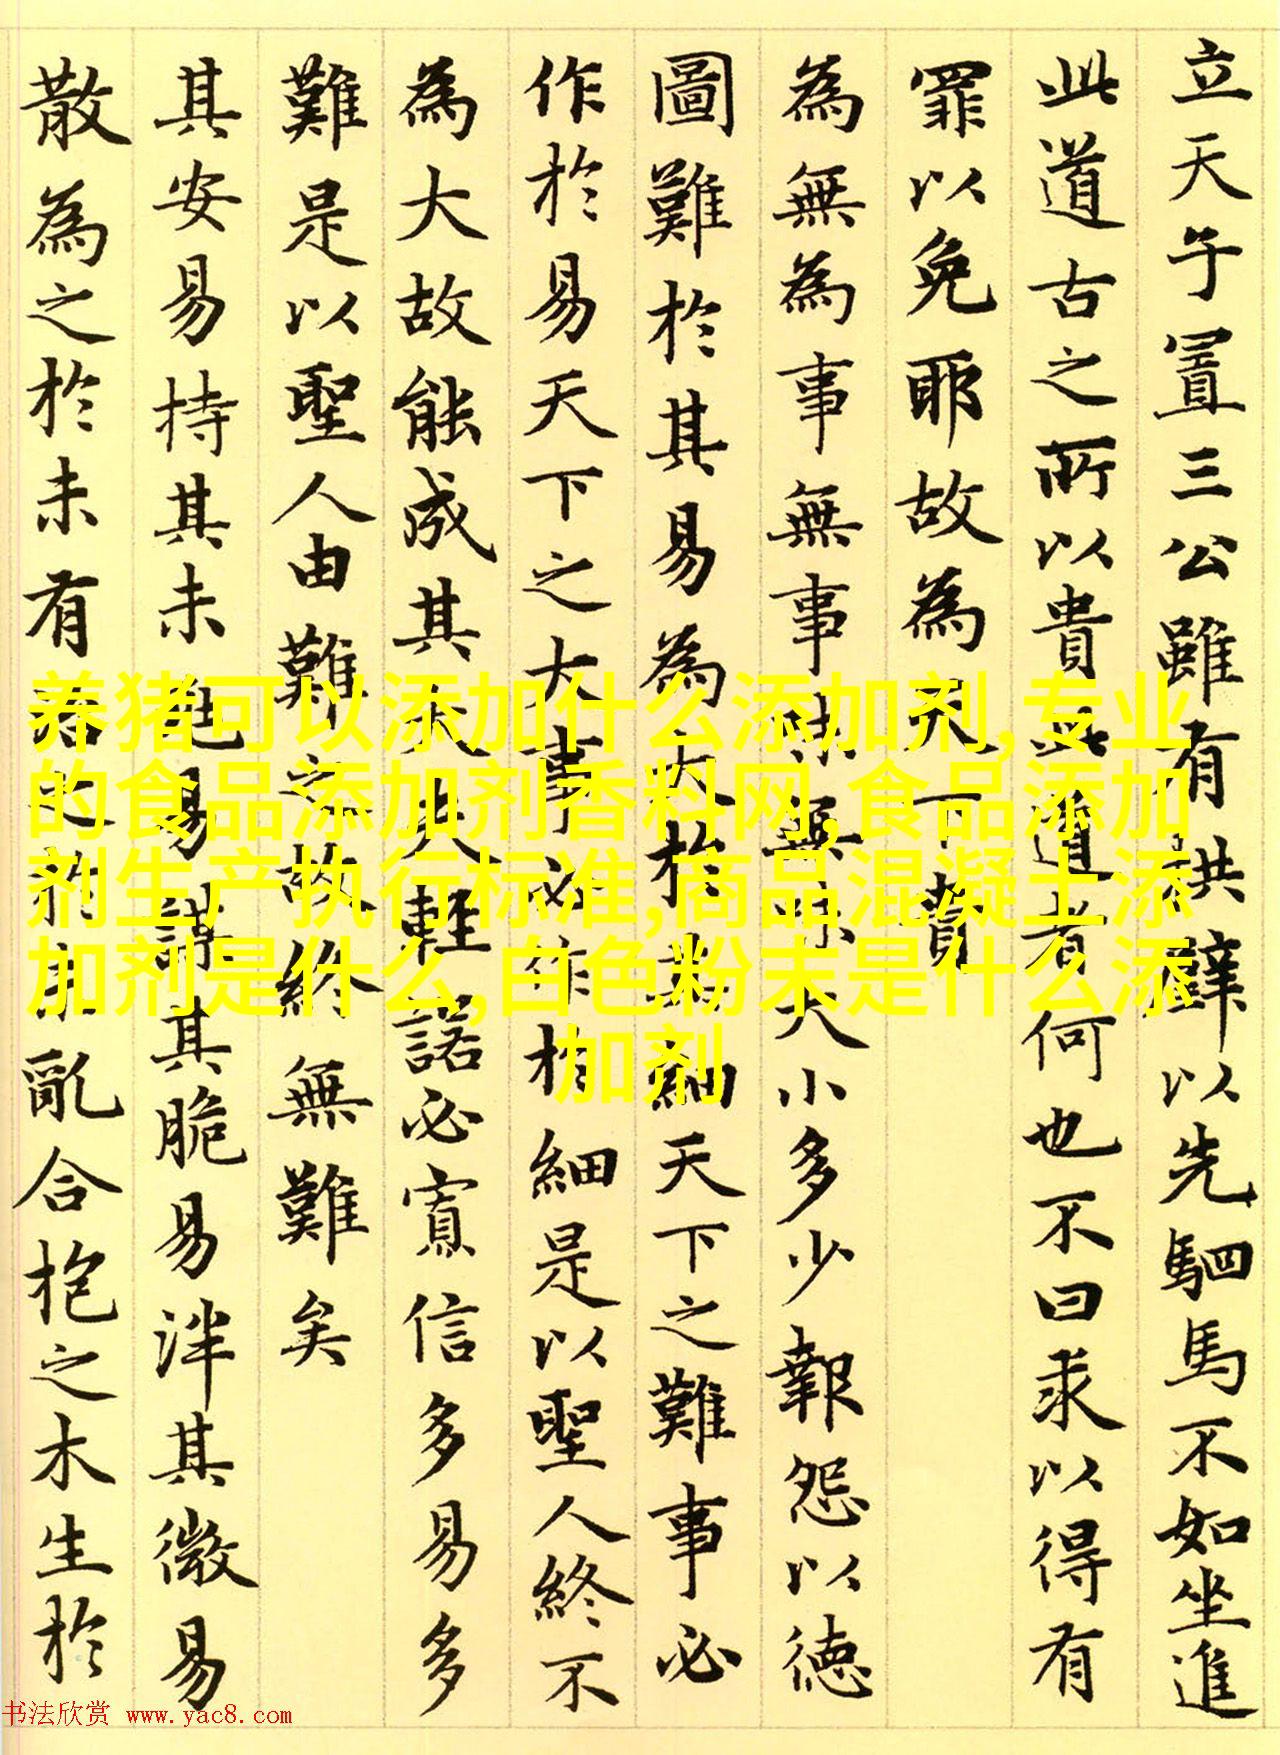 立天子置三公雖有拱璧以先駟馬不如坐進
此道古之所以貴此道者何也不曰求以得有
罪以免耶故為天下貴
為無為事無事味無味大小多少報怨以德
圖難於其易為大於其細天下之難事必
作於易天下之大事必作於細是以聖人終不
為大故能成其大夫輕諾必寡信多易多
難是以聖人由難之故終無難矣
其安易持其未兆易謀其脆易泮其微易
散為之於未有治之於未亂合抱之木生於
养猪可以添加什么添加剂,专业
的食品添加剂香料网,食品添加
剂生产执行标准,商品混凝土添
加剂是什么,白色粉末是什么添
加剂
书法欣赏 www.yac8.com